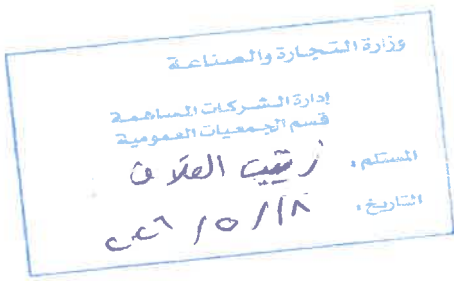 وزارة التجارة والصناعة
إدارة الشركات المساهمة
قسم الجمعيات العمومية
المستلم : زينب العلاق
التاريخ : ٢٠٢٦/٥/١٨